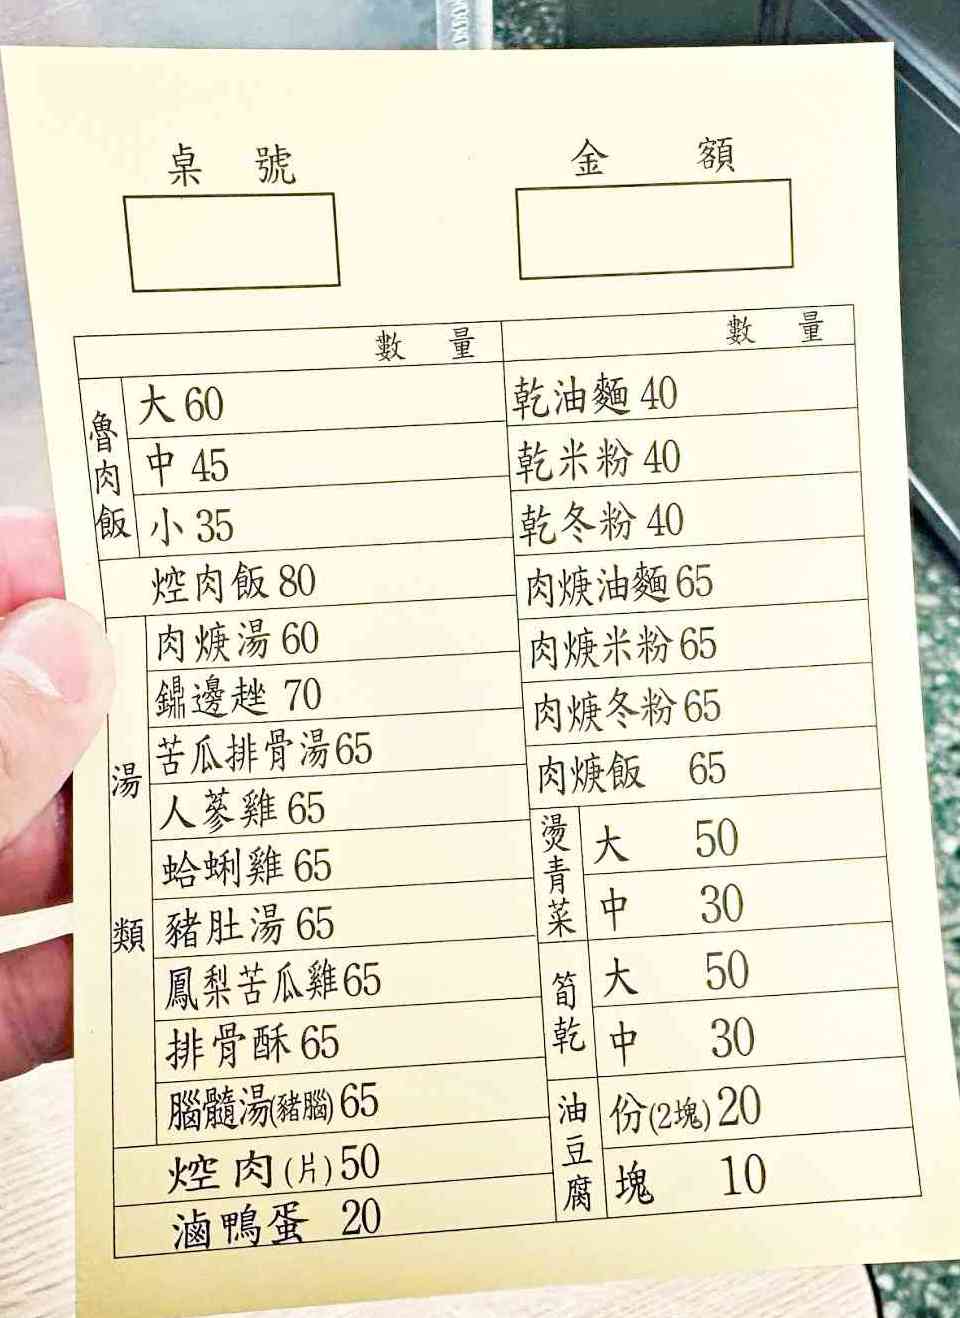 桌號
金額
數量
魯肉飯
大 60
中 45
小 35
焢肉飯 80
湯類
肉焿湯 60
鼎邊趖 70
苦瓜排骨湯 65
人蔘雞 65
蛤蜊雞 65
豬肚湯 65
鳳梨苦瓜雞 65
排骨酥 65
腦髓湯(豬腦) 65
焢肉(片) 50
滷鴨蛋 20
數量
乾油麵 40
乾米粉 40
乾冬粉 40
肉焿油麵 65
肉焿米粉 65
肉焿冬粉 65
肉焿飯 65
燙青菜
大 50
中 30
筍乾
大 50
中 30
油豆腐
份(2塊) 20
塊 10